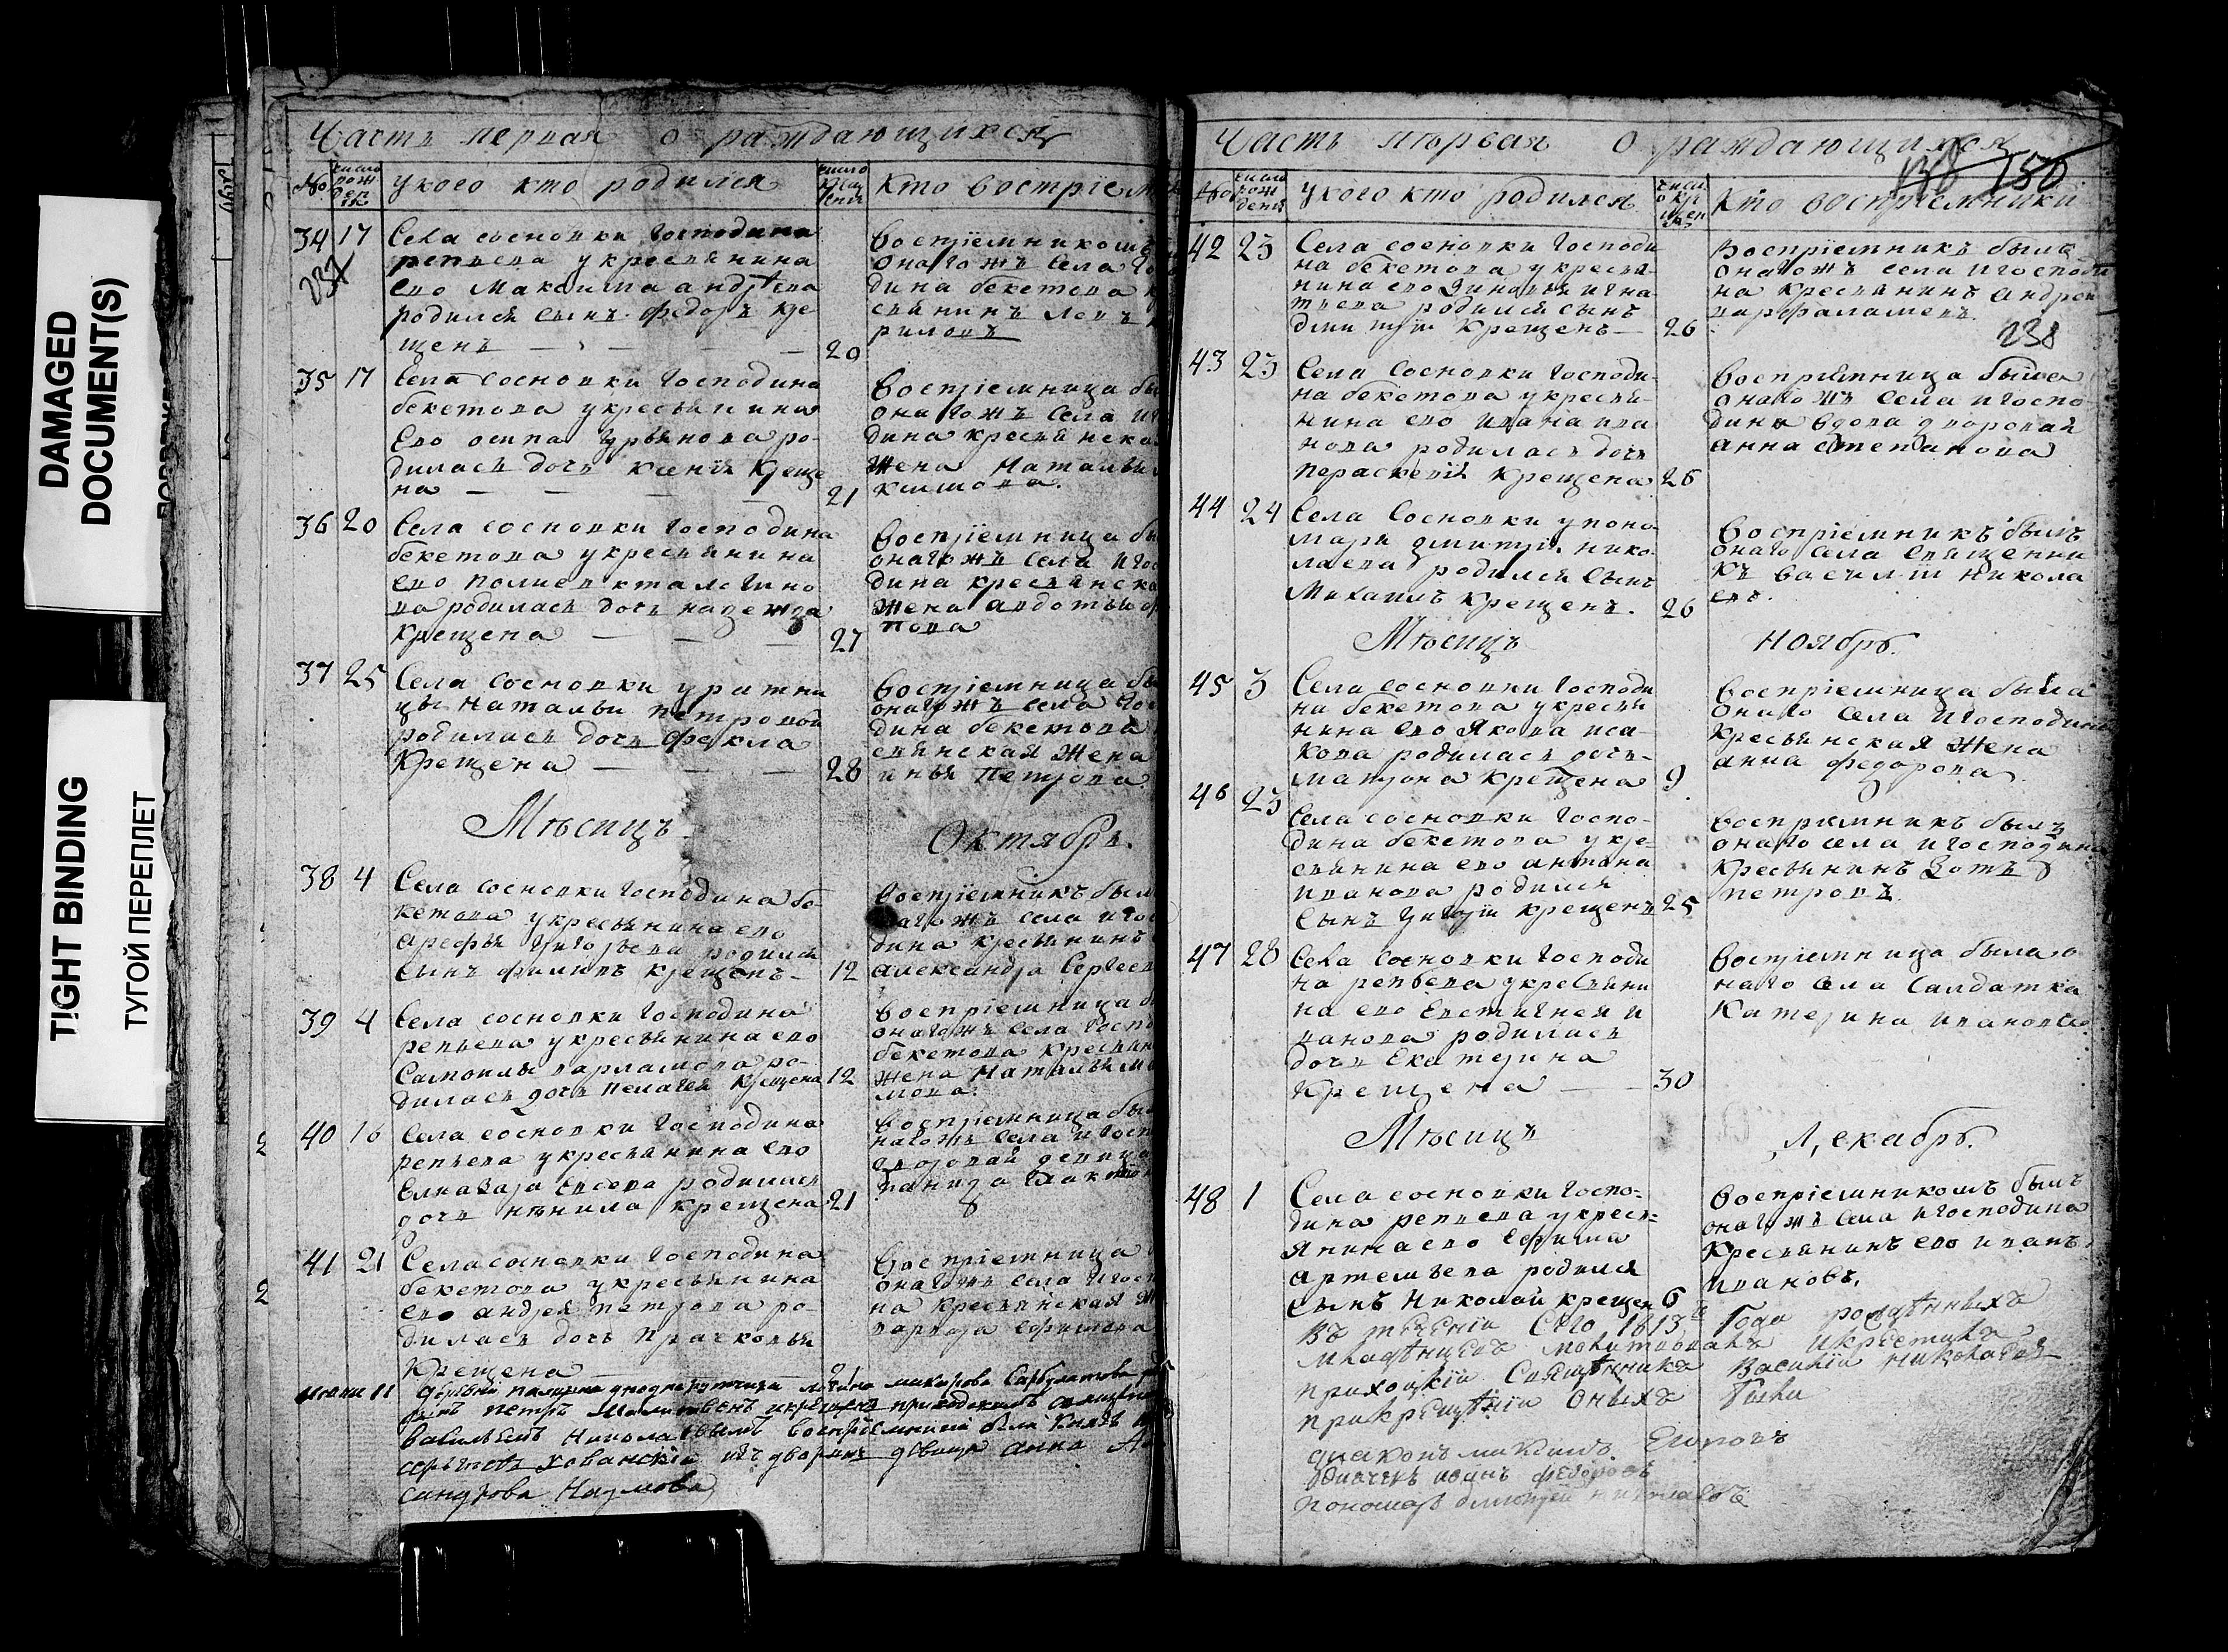 DAMAGED
DOCUMENT(S)
TIGHT BINDING
ТУГОЙ ПЕРЕПЛЕТ
Часть первая о раждающихся
№
число рож дения
у кого кто родился
число крещения
Кто восприем
34 17
237
Села сосновки Господина
репьева у кресьянина
ево Максима андрѣева
родился сынъ федоръ кре
щенъ — 20
восприемникомъ
онагожъ села го
дина бекетова
сьянинъ левъ
риловъ
35 17
Села сосновки Господина
бекетова у кресьянина
Ево осипа Гурьянова ро-
дилась дочь ксения креще
на — 21
восприемница бы
онагожъ села иго
дина кресьянска
жена Наталья
климова.
36 20
Села сосновки Господина
бекетова у кресьянина
ево полиевкта логино
ва родилась дочь надежда
крещена — 27
восприемница бы
онагожъ села игос
дина кресьянска
жена авдотья
пова
37 25
Села сосновки у ратни
цы Натальи петровой
родилась дочь фекла
Крещена — 28
восприемница бы
онагожъ села гос
дина бекетова
сьянская жена
инья Петрова
Мѣсицъ Октябрь.
38 4
Села сосновки Господина бе-
кетова у кресьянина ево
арефья григорьева родился
сынъ филипъ крещенъ- 12
восприемникъ былъ
нагожъ села игос
дина кресьянинъ
александра Сергеев
39 4
Села сосновки Господина
репьева у кресьянина ево
Самойлы варламова ро-
дилась дочь пелагея крещена 12
восприемница бы
онагожъ села Госпо
бекетова кресьян
жена Наталья
мова.
40 16
Села сосновки Господина
репьева у кресьянина ево
Елиазара сысоева родилась
дочь нѣнила крещена 21
восприемница был
нагожъ села и госп
дворовай девица
41 21
Села сосновки Господина
бекетова у кресьянина
ево андрея петрова ро-
дилась дочь Прасковья
Крещена — 21
восприемница
онагожъ села игосп
на кресьянская
варвара Ефимова
июни 11
сынъ петръ Молитвенъ и крещенъ приходскимъ священ
василиемъ Николаевымъ восприемники были Князь
сергиевъ Хованский изъ дворянъ девица анна
сандрова Наумова
Часть първая о раждающихся
130 150
№
число рож дения
у кого кто родился
число крещения
Кто восприемники
42 23
Села сосновки Господи
на бекетова у кресья-
нина ево Зиновья игна-
тьева родился сынъ
дмитрий крещенъ — 26
Восприемникъ былъ
онагожъ села и господи
на кресьянинъ Андрей
варфаламеев
238
43 23
Села Сосновки Господи-
на бекетова у кресья-
нина ево ивана ива
нова родилась дочь
параскевия крещена 26
восприемница была
онагожъ села и госпо
дина вдова дворовая
анна степанова
44 24
Села Сосновки у поно-
маря дмитрия нико-
лаева родился сынъ
Михаилъ крещенъ. 26
восприемникъ былъ
онаго села священни
къ василий никола
евъ.
Мѣсицъ Ноябрь.
45 3
Села сосновки Господи
на бекетова у кресья
нина ево Якова иса-
кова родилась дочь
матрона крещена 9
восприемница была
онаго села и господина
кресьянская жена
анна федорова.
46 23
Села сосновки Госпо-
дина бекетова у кре-
сьянина ево антона
иванова родился
сынъ григорий крещенъ 25
восприемникъ былъ
онаго села и господина
кресьянинъ Зотъ
петровъ.
47 28
Села Сосновки Господи
на репьева у кресьяни
на ево Евстигнея и
ванова родилась
дочь Екатерина
Крещена — 30
восприемница была о
наго села салдатка
Катерина иванова
Мѣсицъ Декабрь.
48 1
Села сосновки Госпо-
дина репьева у кресь-
янина ево Ефима
артемьева родился
сынъ Николай крещен 6
восприемникомъ былъ
онагожъ села и господина
кресьянинъ ево иванъ
ивановъ.
Въ течении Сего 1813 Года рожденныхъ
младенцевъ молитвовалъ и крестилъ
приходский Священникъ Василий Николаевъ
При крещении Оныхъ были
диаконъ Максимъ Егоровъ
дьячекъ иванъ федоровъ
Пономарь дмитрей николаевъ